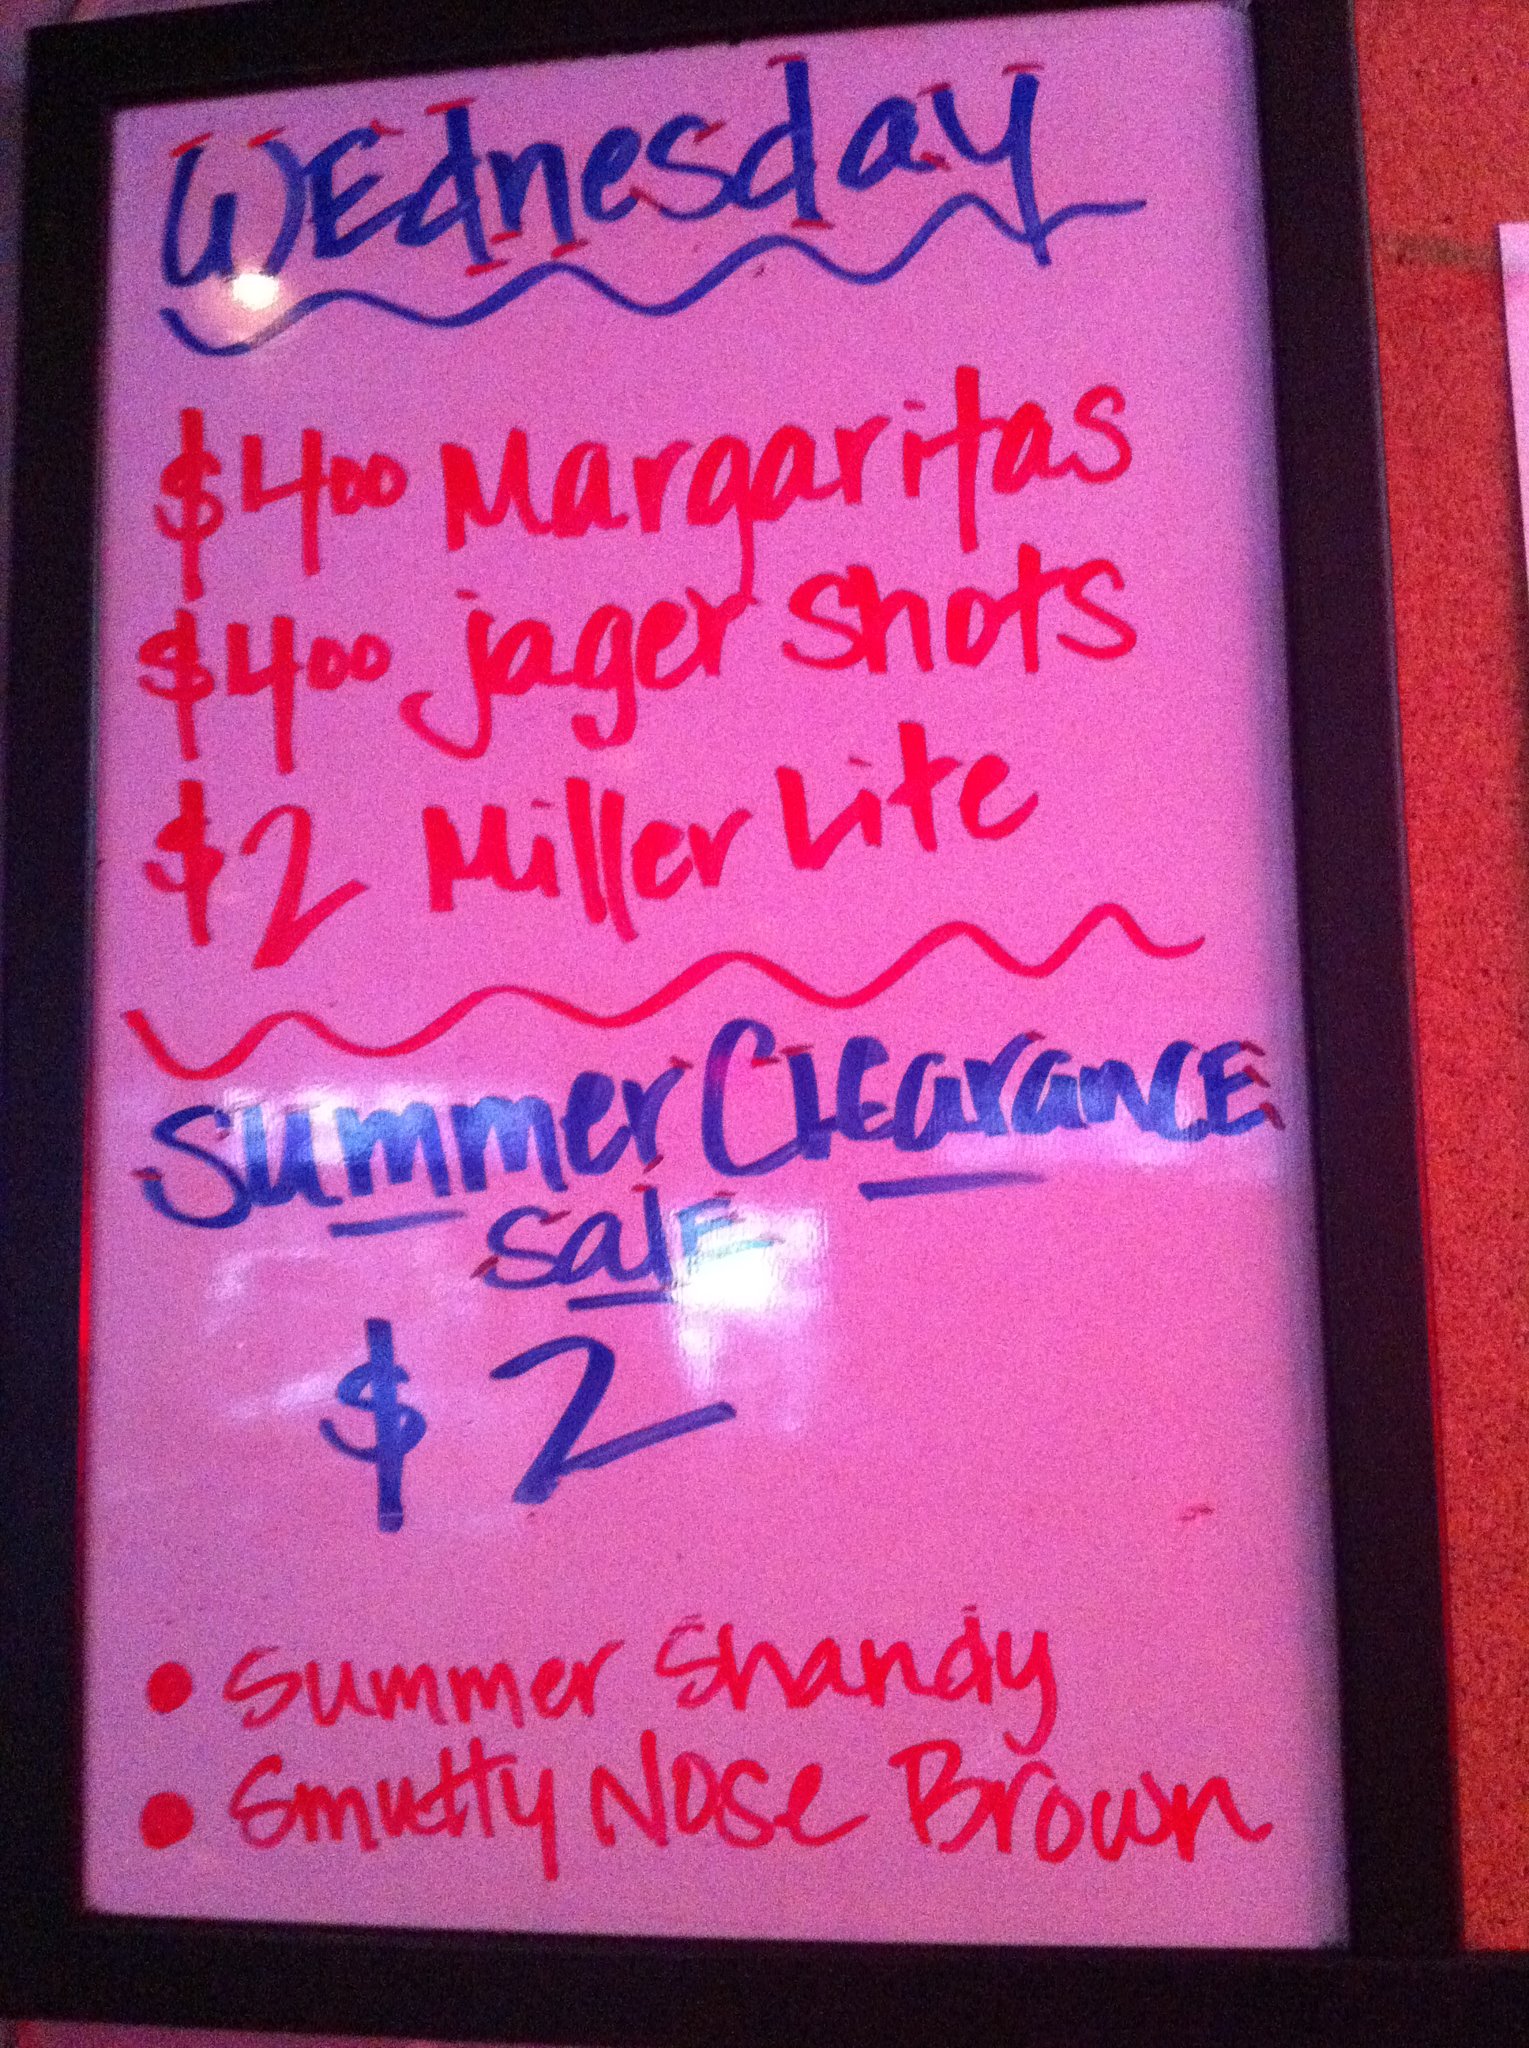 WEdnesday
$400 Margaritas
$400 jager shots
$2 Miller Lite
Summer ClEarancE
salE
$2
• Summer Shandy
• Smutty Nose Brown